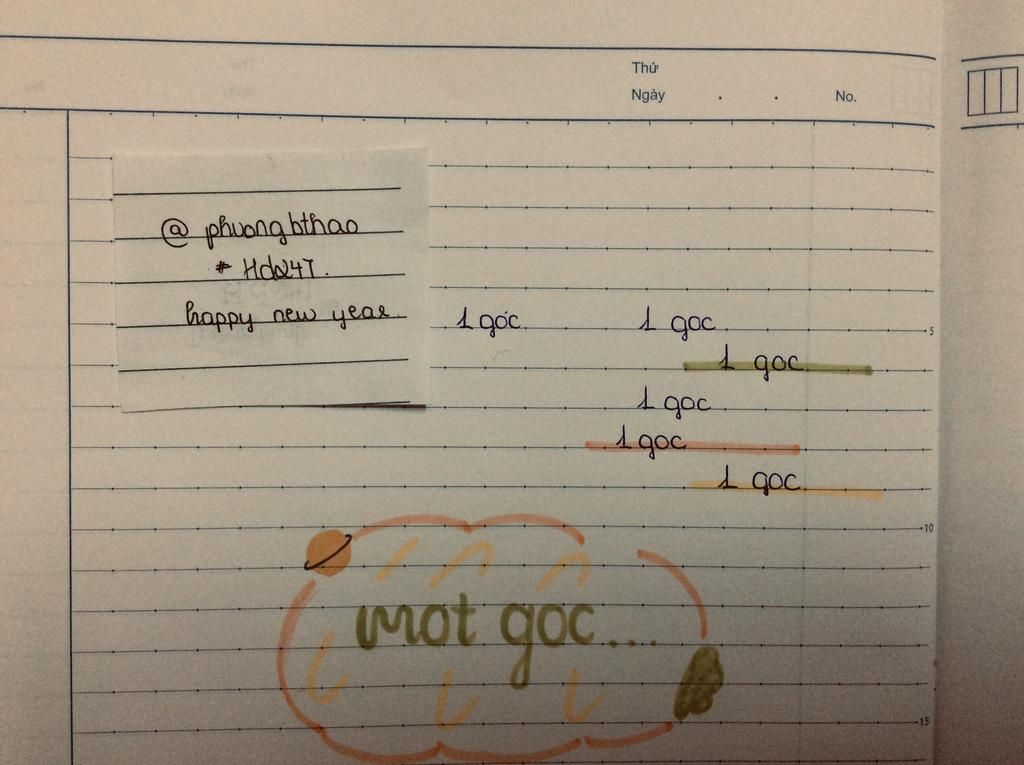 Thứ
Ngày . . No.
@ phuongbthao
# Hd247.
happy new year
1 góc 1 goc
5
1 goc
1 goc
1 goc
1 goc
10
mot goc...
15